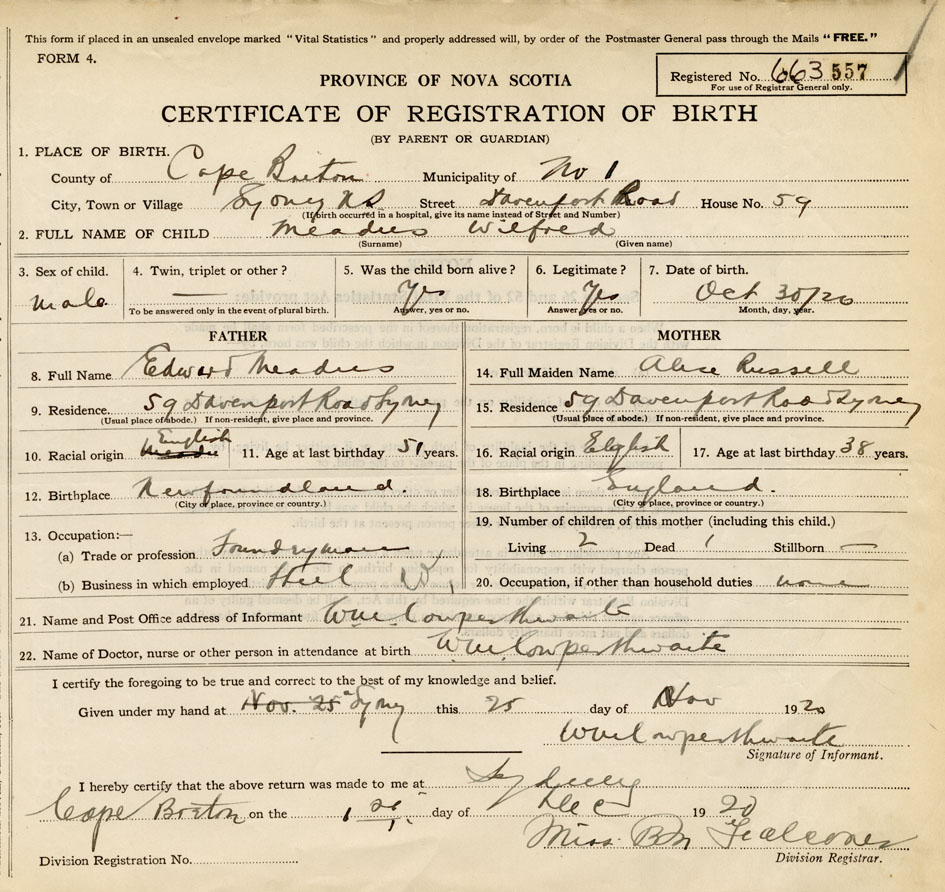 This form if placed in an unsealed envelope marked "Vital Statistics" and properly addressed will, by order of the Postmaster General pass through the Mails "FREE."
FORM 4.
Registered No. 663 557
For use of Registrar General only.
PROVINCE OF NOVA SCOTIA
CERTIFICATE OF REGISTRATION OF BIRTH
(BY PARENT OR GUARDIAN)
1. PLACE OF BIRTH.
County of Cape Breton Municipality of No 1
City, Town or Village Sydney N S Street Davenport Road House No. 59
(If birth occurred in a hospital, give its name instead of Street and Number)
2. FULL NAME OF CHILD Meadus Wilfred
(Surname) (Given name)
3. Sex of child. 4. Twin, triplet or other? 5. Was the child born alive? 6. Legitimate? 7. Date of birth.
male — Yes Yes Oct 30/20
To be answered only in the event of plural birth. Answer, yes or no. Answer, yes or no. Month, day, year.
FATHER MOTHER
8. Full Name Edward Meadus 14. Full Maiden Name Alice Russell
9. Residence. 59 Davenport Road Sydney 15. Residence 59 Davenport Road Sydney
(Usual place of abode.) If non-resident, give place and province. (Usual place of abode.) If non-resident, give place and province.
10. Racial origin English 11. Age at last birthday 51 years. 16. Racial origin English 17. Age at last birthday 38 years.
12. Birthplace Newfoundland. 18. Birthplace England.
(City or place, province or country.) (City or place, province or country.)
13. Occupation:— 19. Number of children of this mother (including this child.)
(a) Trade or profession Foundryman Living 2 Dead 1 Stillborn —
(b) Business in which employed Steel W. 20. Occupation, if other than household duties none
21. Name and Post Office address of Informant Wm Cowperthwaite
22. Name of Doctor, nurse or other person in attendance at birth Wm Cowperthwaite
I certify the foregoing to be true and correct to the best of my knowledge and belief.
Given under my hand at Nov. 25 Sydney this 25 day of Nov 1920
Wm Cowperthwaite
Signature of Informant.
I hereby certify that the above return was made to me at Sydney
Cape Breton on the 1 day of Dec 1920
Miss B M
Division Registration No. Division Registrar.